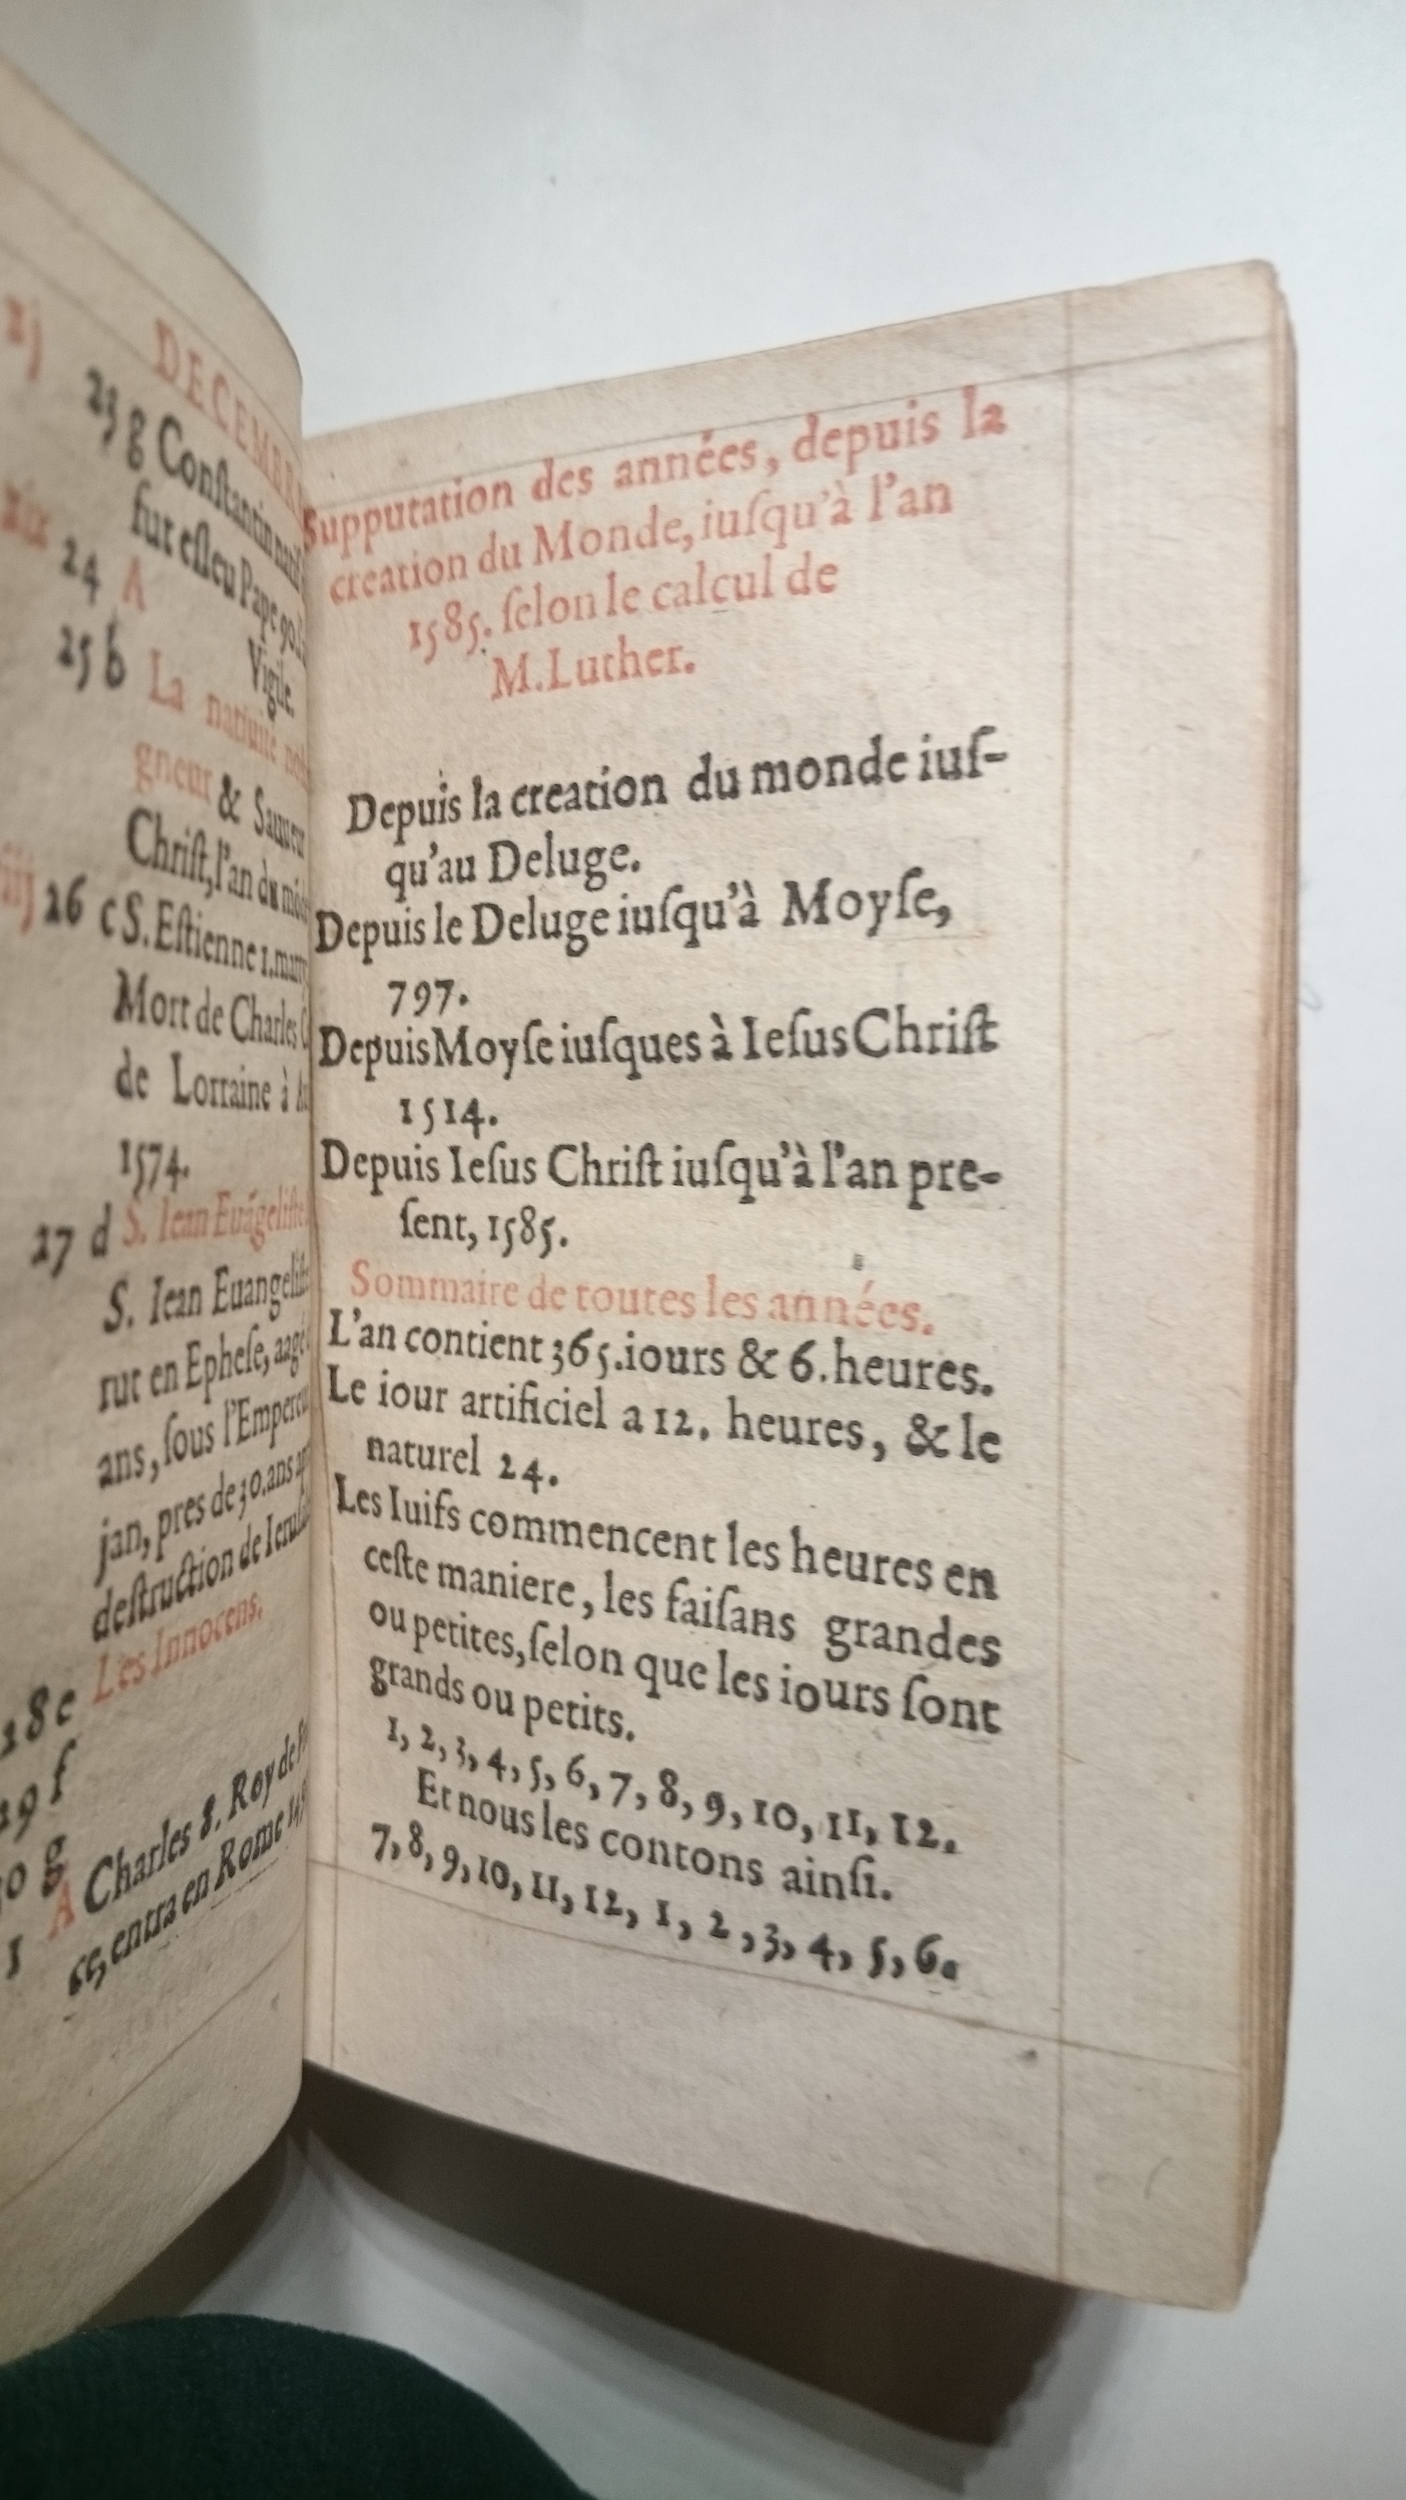 ij
DECEMBR
23 g Conſtantin
fut eſleu Pape 90.
xix 24 A
Vigile.
25 b La natiuité
gneur & Sauueu
Chriſt, l'an du mõ
iij 26 c S. Eſtienne 1. mart
Mort de Charles
de Lorraine à
1574.
27 d S. Iean Euãgeliſte
S. Iean Euangeliſt
rut en Epheſe, aagé
ans, ſous l'Empereu
jan, pres de 30. ans
deſtruction de Ieruſa
28 e Les Innocens.
29 f
30 g
A Charles 8. Roy de
ce, entra en Rome
Supputation des années, depuis la
creation du Monde, iuſqu'à l'an
1585. ſelon le calcul de
M. Luther.
Depuis la creation du monde iuſ-
qu'au Deluge.
Depuis le Deluge iuſqu'à Moyſe,
797.
Depuis Moyſe iuſques à Ieſus Chriſt
1514.
Depuis Ieſus Chriſt iuſqu'à l'an pre-
ſent, 1585.
Sommaire de toutes les années.
L'an contient 365. iours & 6. heures.
Le iour artificiel a 12. heures, & le
naturel 24.
Les Iuifs commencent les heures en
ceſte maniere, les faiſans grandes
ou petites, ſelon que les iours ſont
grands ou petits.
1, 2, 3, 4, 5, 6, 7, 8, 9, 10, 11, 12.
Et nous les contons ainſi.
7, 8, 9, 10, 11, 12, 1, 2, 3, 4, 5, 6.